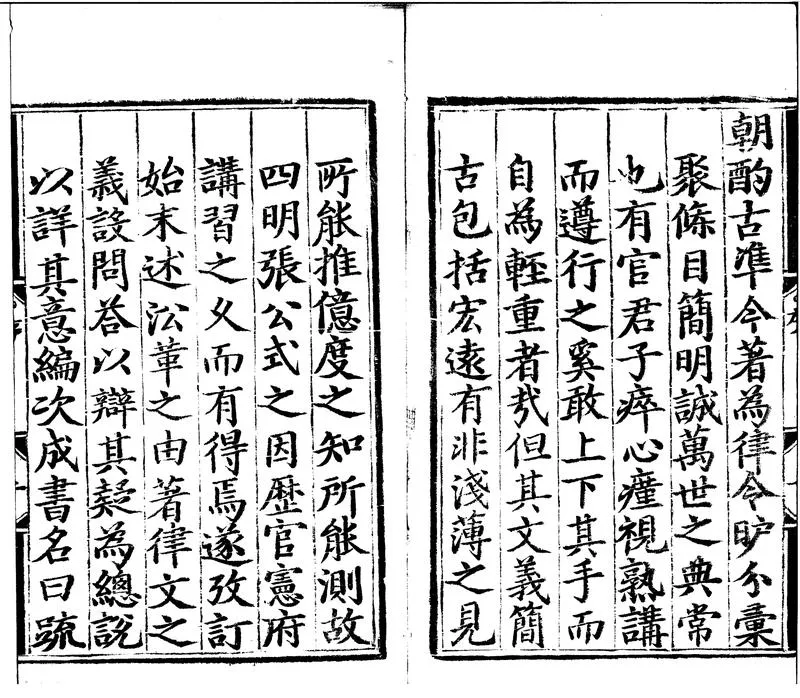 朝酌古準今著為律令昈分彙
聚條目簡明誠萬世之典常
也有官君子瘁心瘽視熟講
而遵行之奚敢上下其手而
自為輕重者㢤但其文義簡
古包括宏遠有非淺薄之見
所能推億度之知所能測故
四明張公式之因歷官憲府
講習之久而有得焉遂攷訂
始末述沿革之由著律文之
義設問荅以辯其疑為總說
以詳其意編次成書名曰疏